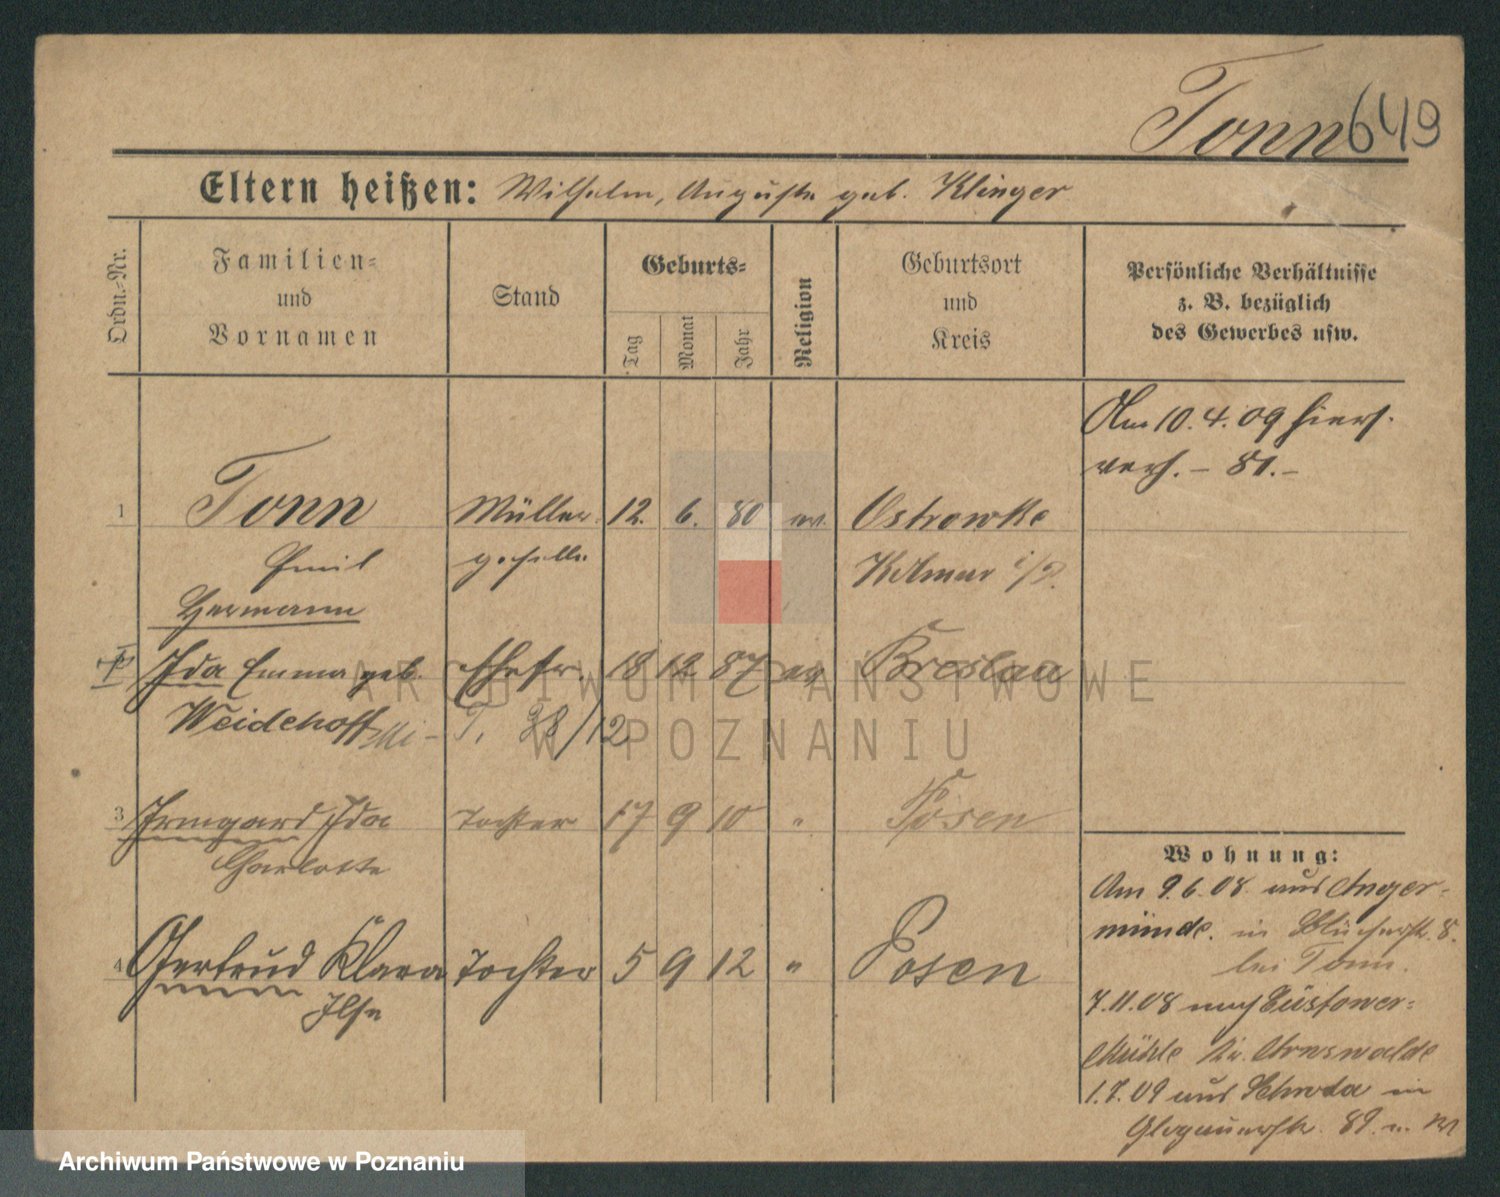 Tonn 649
Eltern heißen: Wilhelm, Auguste geb. Klinger
Ordn.-Nr.
Familien-
und
Vornamen
Stand
Geburts-
Tag
Monat
Jahr
Religion
Geburtsort
und
Kreis
Persönliche Verhältnisse
z. B. bezüglich
des Gewerbes usw.
Am 10.4.09 hiers.
verh. – 81. –
1 Tonn Müller 12. 6. 80 ev. Ostrowke
Emil geselle Kolmar i/P.
Hermann
Ida Emma geb. Ehefr. 18 12 87 ev Breslau
Weidehoff T. 28/12
3 Irmgard Ida Tochter 17 9 10 " Posen
Charlotte
4 Gertrud Klara Tochter 5 9 12 " Posen
Ilse
Wohnung:
Am 9.6.08. aus Anger-
münde. in Blücherstr. 8.
bei Tonn.
7.11.08 nach
Mühle Kr. Arnswalde
1.7.09 aus Schroda in
Glogauerstr. 89.
ARCHIWUM PAŃSTWOWE
W POZNANIU
Archiwum Państwowe w Poznaniu